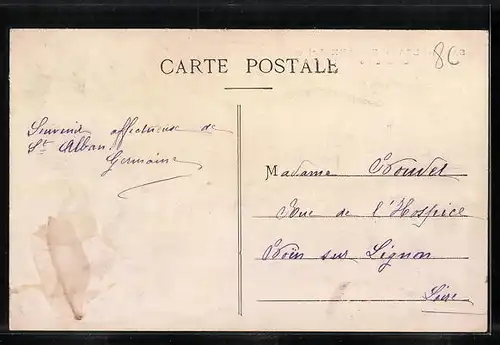 CARTE POSTALE
8C
Souvenir affectueux de
St Alban.
Germaine
Madame
Rue de l'Hospice
Boën sur Lignon
Loire